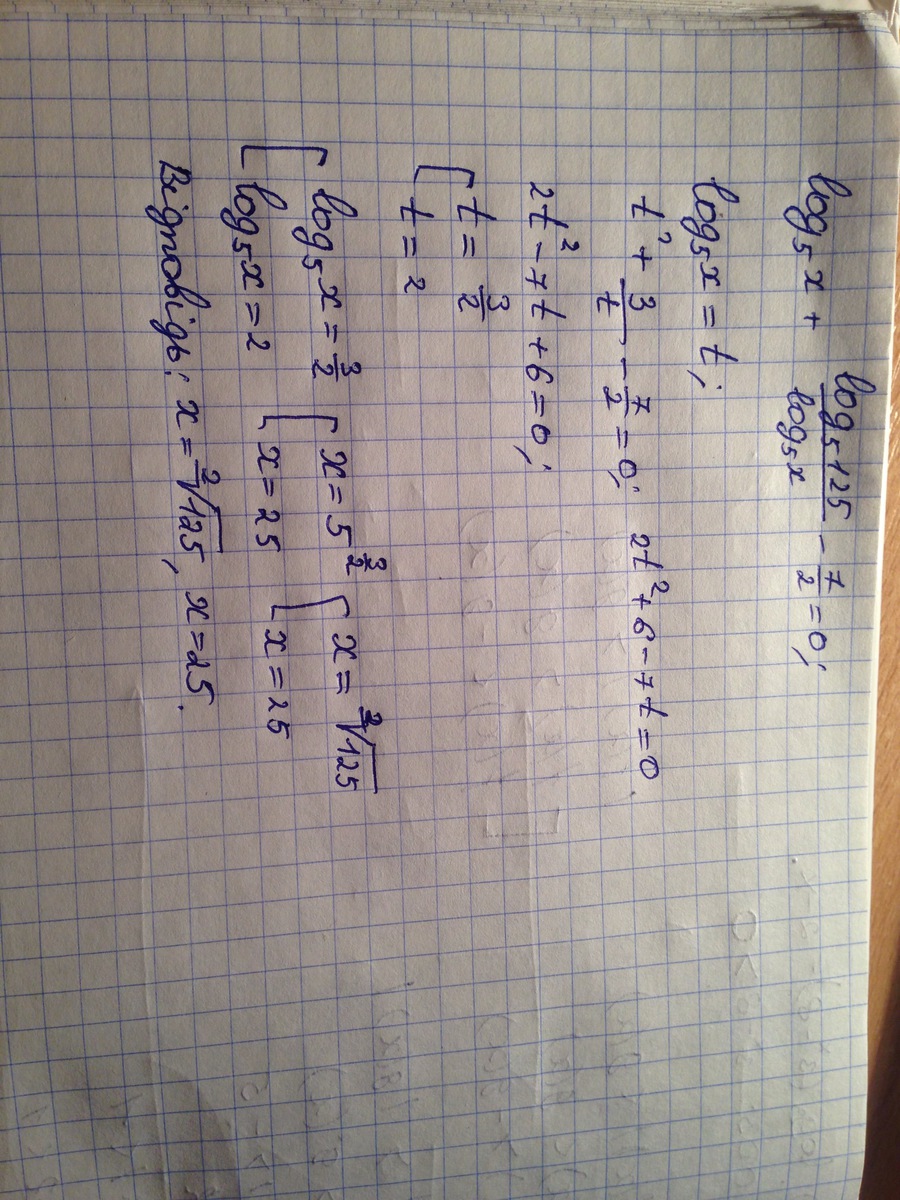 log₅x + log₅125/log₅x - 7/2 = 0;
log₅x = t;
t² + 3/t - 7/2 = 0; 2t² + 6 - 7t = 0
2t² - 7t + 6 = 0;
[ t = 3/2
t = 2
[ log₅x = 3/2 [ x = 5^(3/2) [ x = ²√125
log₅x = 2 x = 25 x = 25
Вiдповiдь: x = ²√125, x = 25.